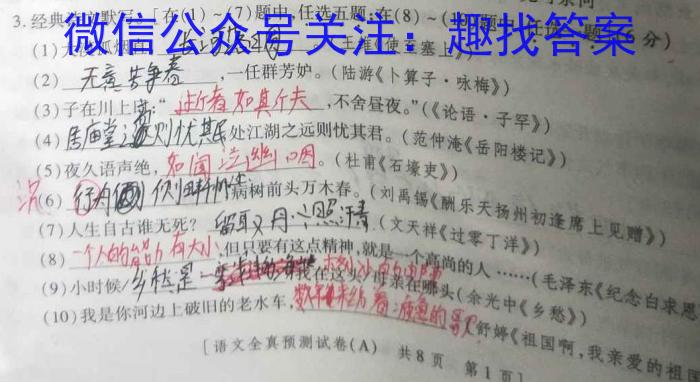 3. 经典诗文默写:[在(1)~(7)题中,任选五题;在(8)~(
微信公众号关注:趣找答案
(2) 无意苦争春,一任群芳妒。(陆游《卜算子·咏梅》)
(3) 子在川上曰:“逝者如其斤夫,不舍昼夜。”(《论语·子罕》)
(4) 居庙堂之则忧其民处江湖之远则忧其君。(范仲淹《岳阳楼记》)
(5) 夜久语声绝,如闻泣幽咽。(杜甫《石壕吏》)
沉
(6) 病树前头万木春。(刘禹锡《酬乐天扬州初逢席上见赠》)
(7) 人生自古谁无死?留取丹心照汗青(文天祥《过零丁洋》)
(8) 一个人的能力有大小,但只要有这点精神,就是一个高尚的人……(毛泽东《纪念白求恩
(9) 小时候/乡愁是一 在这 母亲在哪头(余光中《乡愁》)
(10) 我是你河边上破旧的老水车,数 着疲惫的歌(舒婷《祖国啊,我亲爱的祖国
[语文全真预测试卷(A) 共8页 第1页]